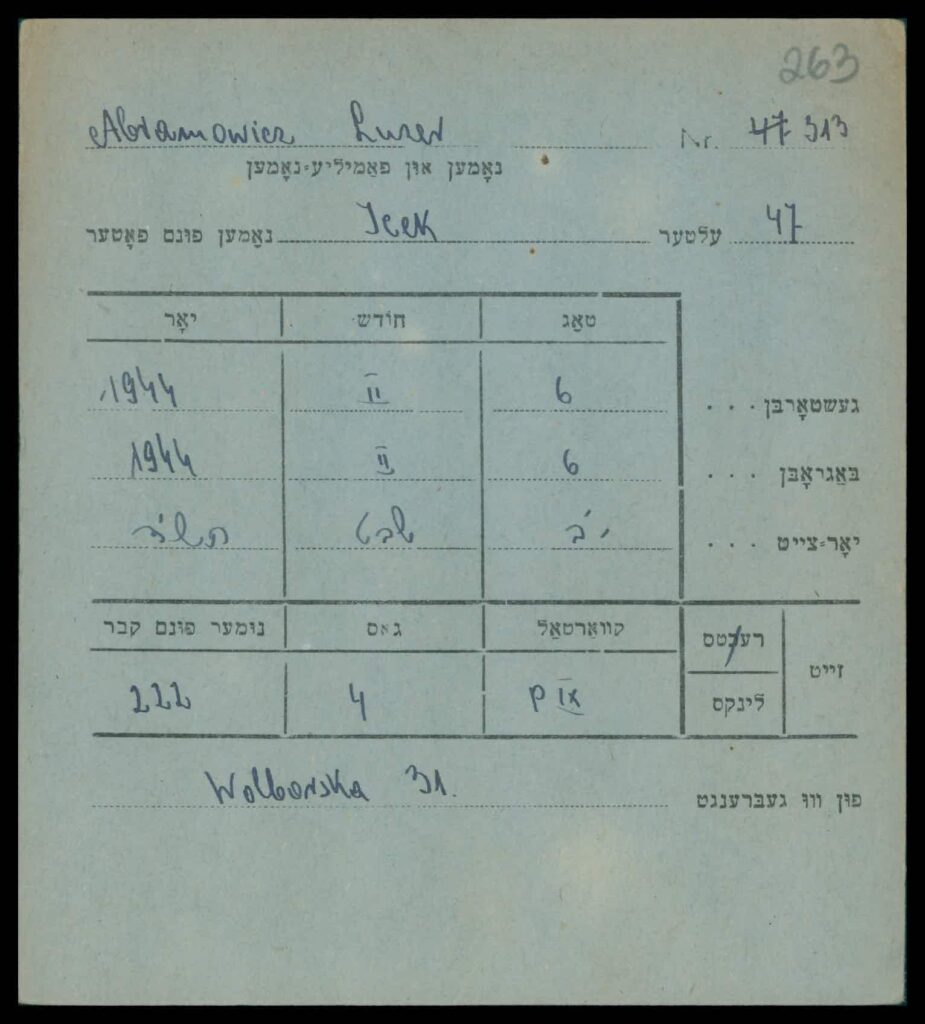 263
Abramowicz Luzer Nr. 47 313
נאָמען און פאַמיליע-נאָמען
עלטער 47 נאָמען פונם פאָטער Icek
טאָג חודש יאָר
געשטאָרבן . . . 6 II 1944
באַגראָבן . . . 6 II 1944
יאָר-צייט . . . י'ב שבט תש'ד
זייט רעכטס קוואַרטאַל גאס נומער פונם קבר
לינקס P 4 222
פון וואו געברענגט Wolborska 31.